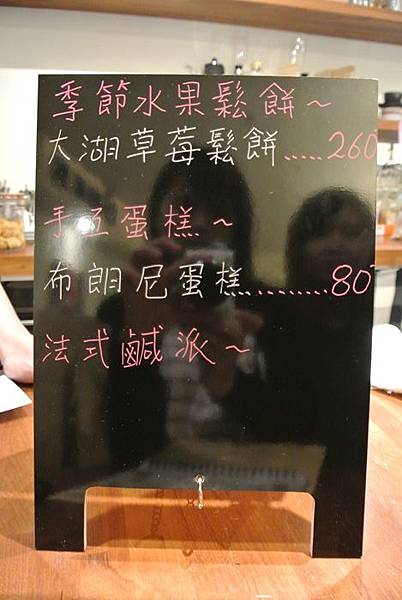 季節水果鬆餅~
大湖草莓鬆餅.....260
手工蛋糕~
布朗尼蛋糕.........80
法式鹹派~